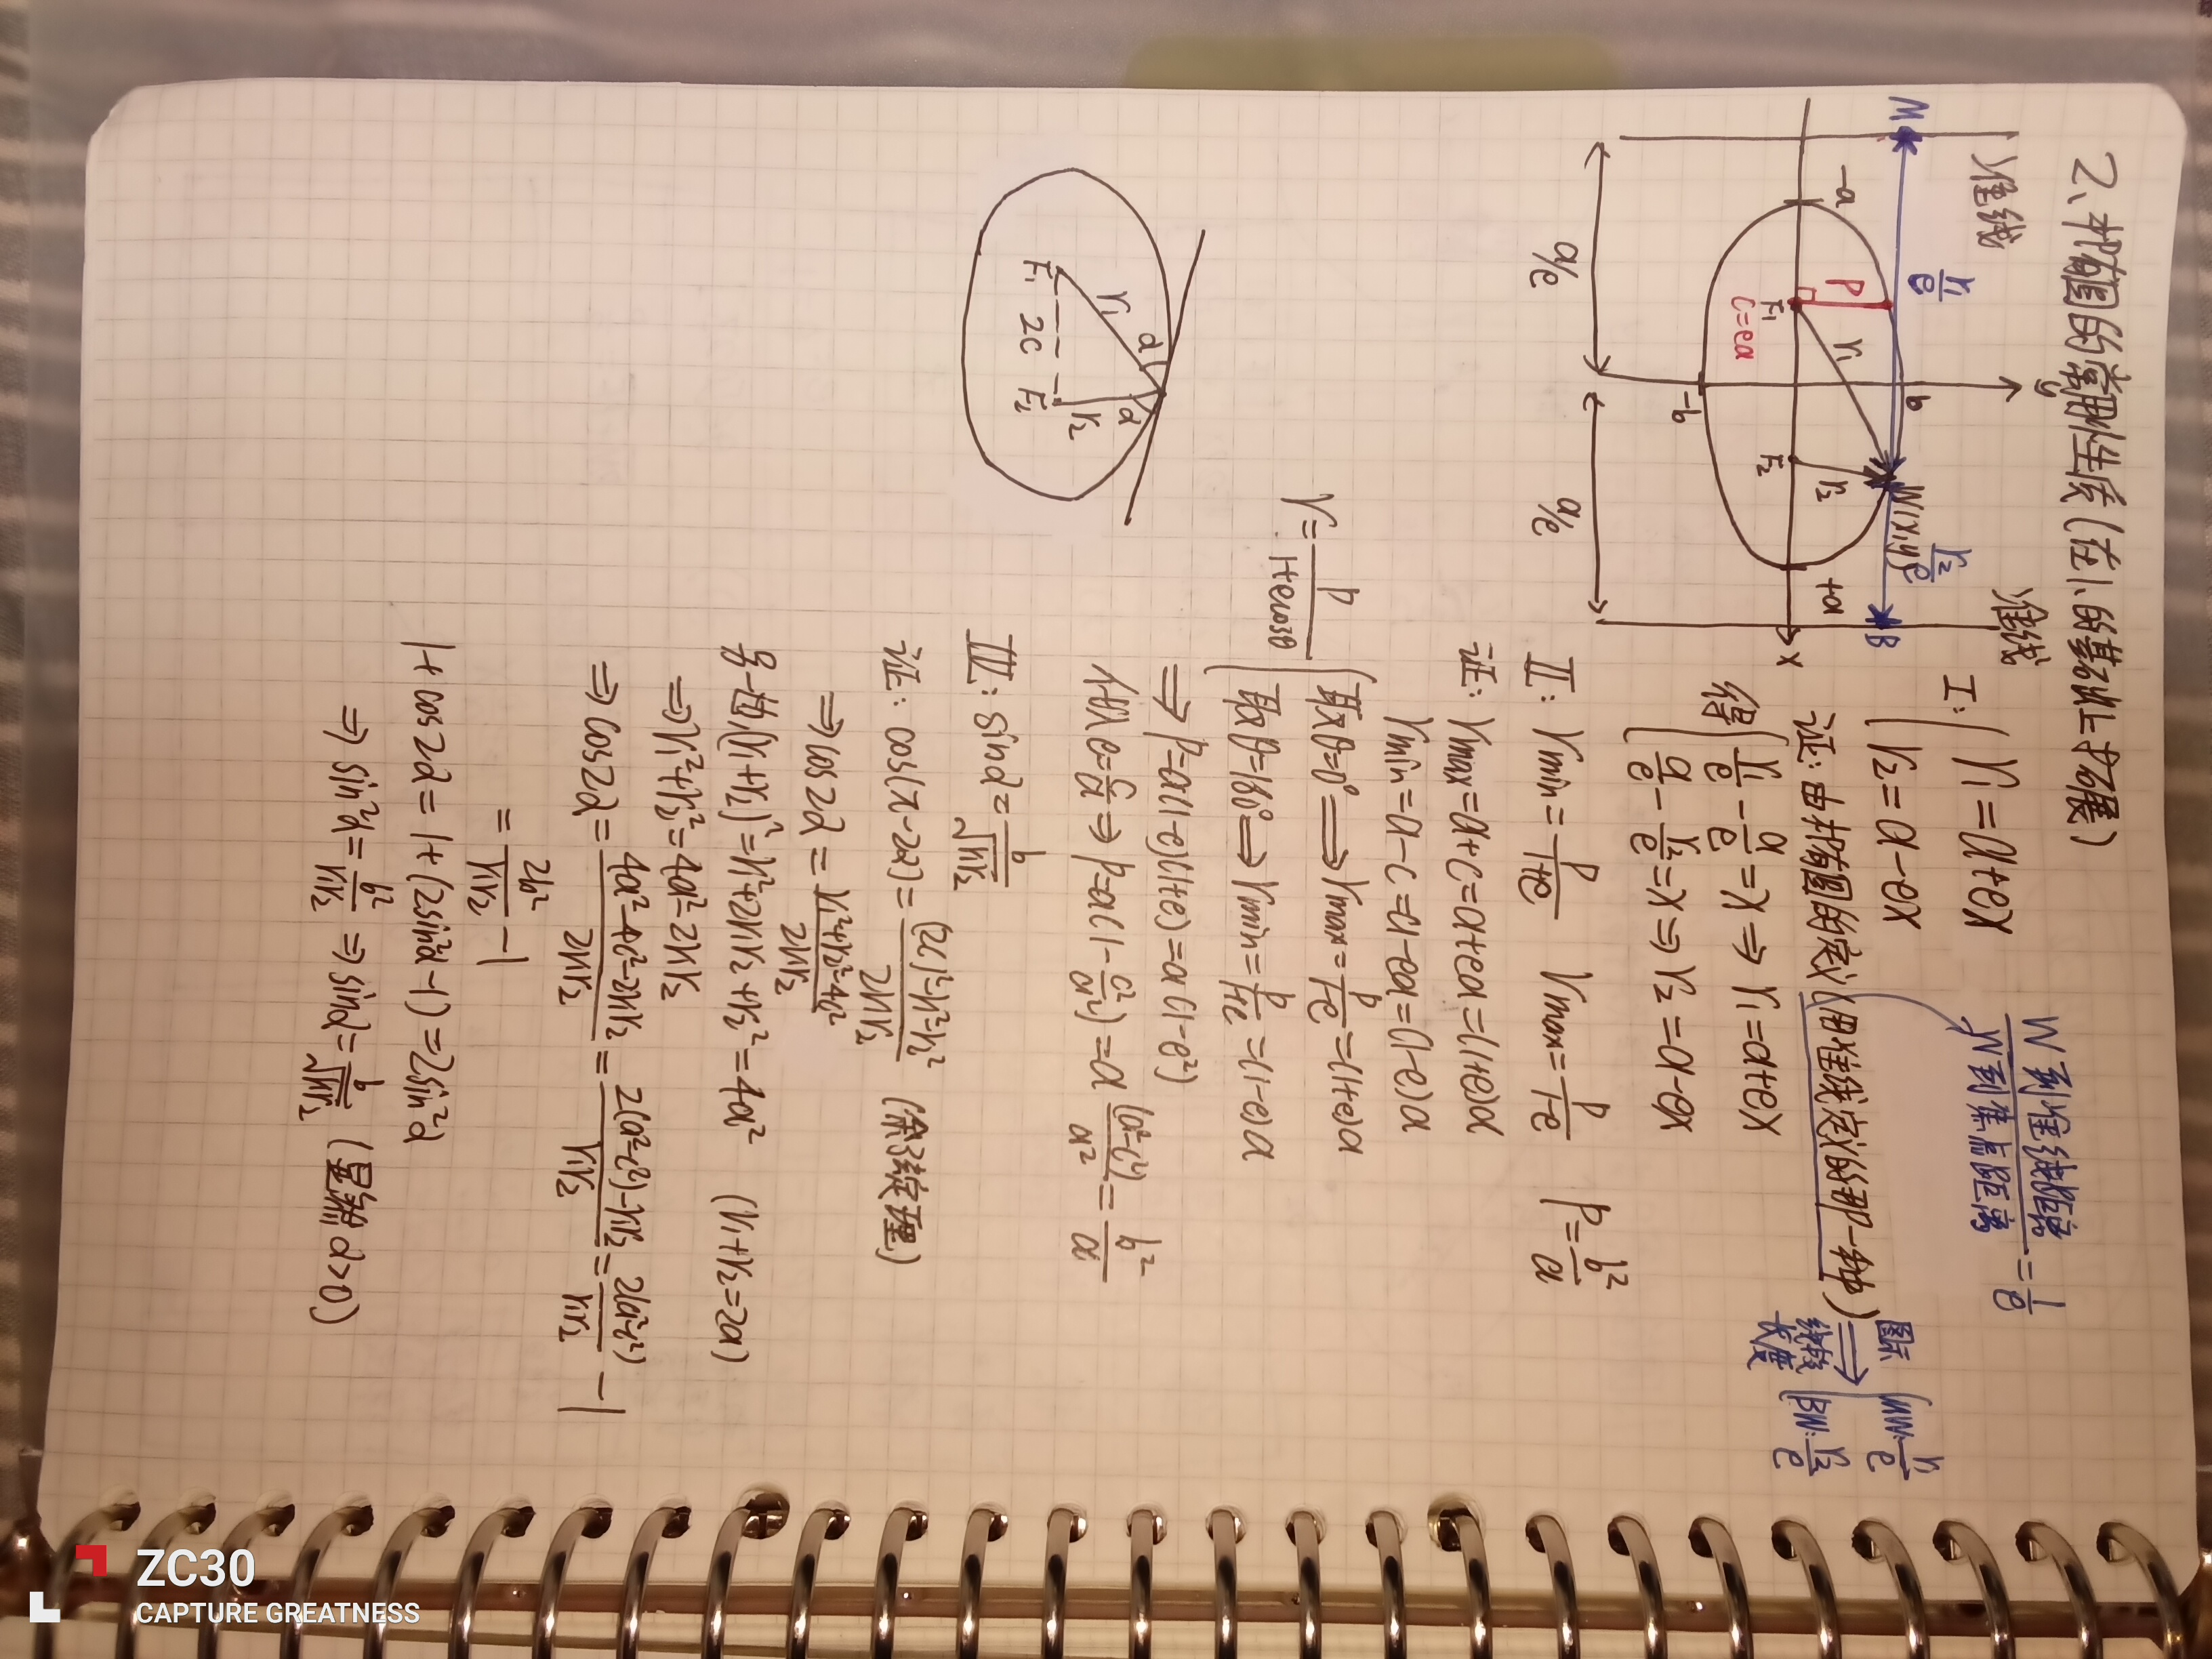 2、椭圆的常用性质(在1、的基础上拓展)
准线
准线
y
x
M
B
W(x,y)
r₁/e
r₂/e
-a
+a
b
-b
P
F₁
C=ea
r₁
F₂
r₂
a/e
a/e
I: { r₁=a+ex
r₂=a-ex
证: 由椭圆的定义(用准线定义的那一种)
W到准线距离/W到焦点距离=1/e
图示线段长度 ⇒ { MW: r₁/e
BW: r₂/e
得 { r₁/e - a/e = x ⇒ r₁=a+ex
a/e - r₂/e = x ⇒ r₂=a-ex
II: rmin=p/(1+e) rmax=p/(1-e) p=b²/a
证: rmax=a+c=a+ea=(1+e)a
rmin=a-c=a-ea=(1-e)a
r=p/(1+ecosθ) { 取θ=0° ⇒ rmax=p/(1-e)=(1+e)a
取θ=180° ⇒ rmin=p/(1+e)=(1-e)a
⇒ p=a(1-e)(1+e)=a(1-e²)
e=c/a ⇒ p=a(1-c²/a²)=a(a²-c²)/a²=b²/a
III: sinα=b/√(r₁r₂)
F₁
2C
F₂
r₁
r₂
α
α
证: cos(π-2α)=((2c)²-r₁²-r₂²)/2r₁r₂ (余弦定理)
⇒ cos2α=(r₁²+r₂²-4c²)/2r₁r₂
另一边,(r₁+r₂)²=r₁²+2r₁r₂+r₂²=4a² (r₁+r₂=2a)
⇒ r₁²+r₂²=4a²-2r₁r₂
⇒ cos2α=(4a²-4c²-2r₁r₂)/2r₁r₂=(2(a²-c²)-r₁r₂)/r₁r₂=2(a²-c²)/r₁r₂-1
=2b²/r₁r₂-1
1+cos2α=1+(2sin²α-1)=2sin²α
⇒ sin²α=b²/r₁r₂ ⇒ sinα=b/√(r₁r₂) (显然α>0)
ZC30
CAPTURE GREATNESS